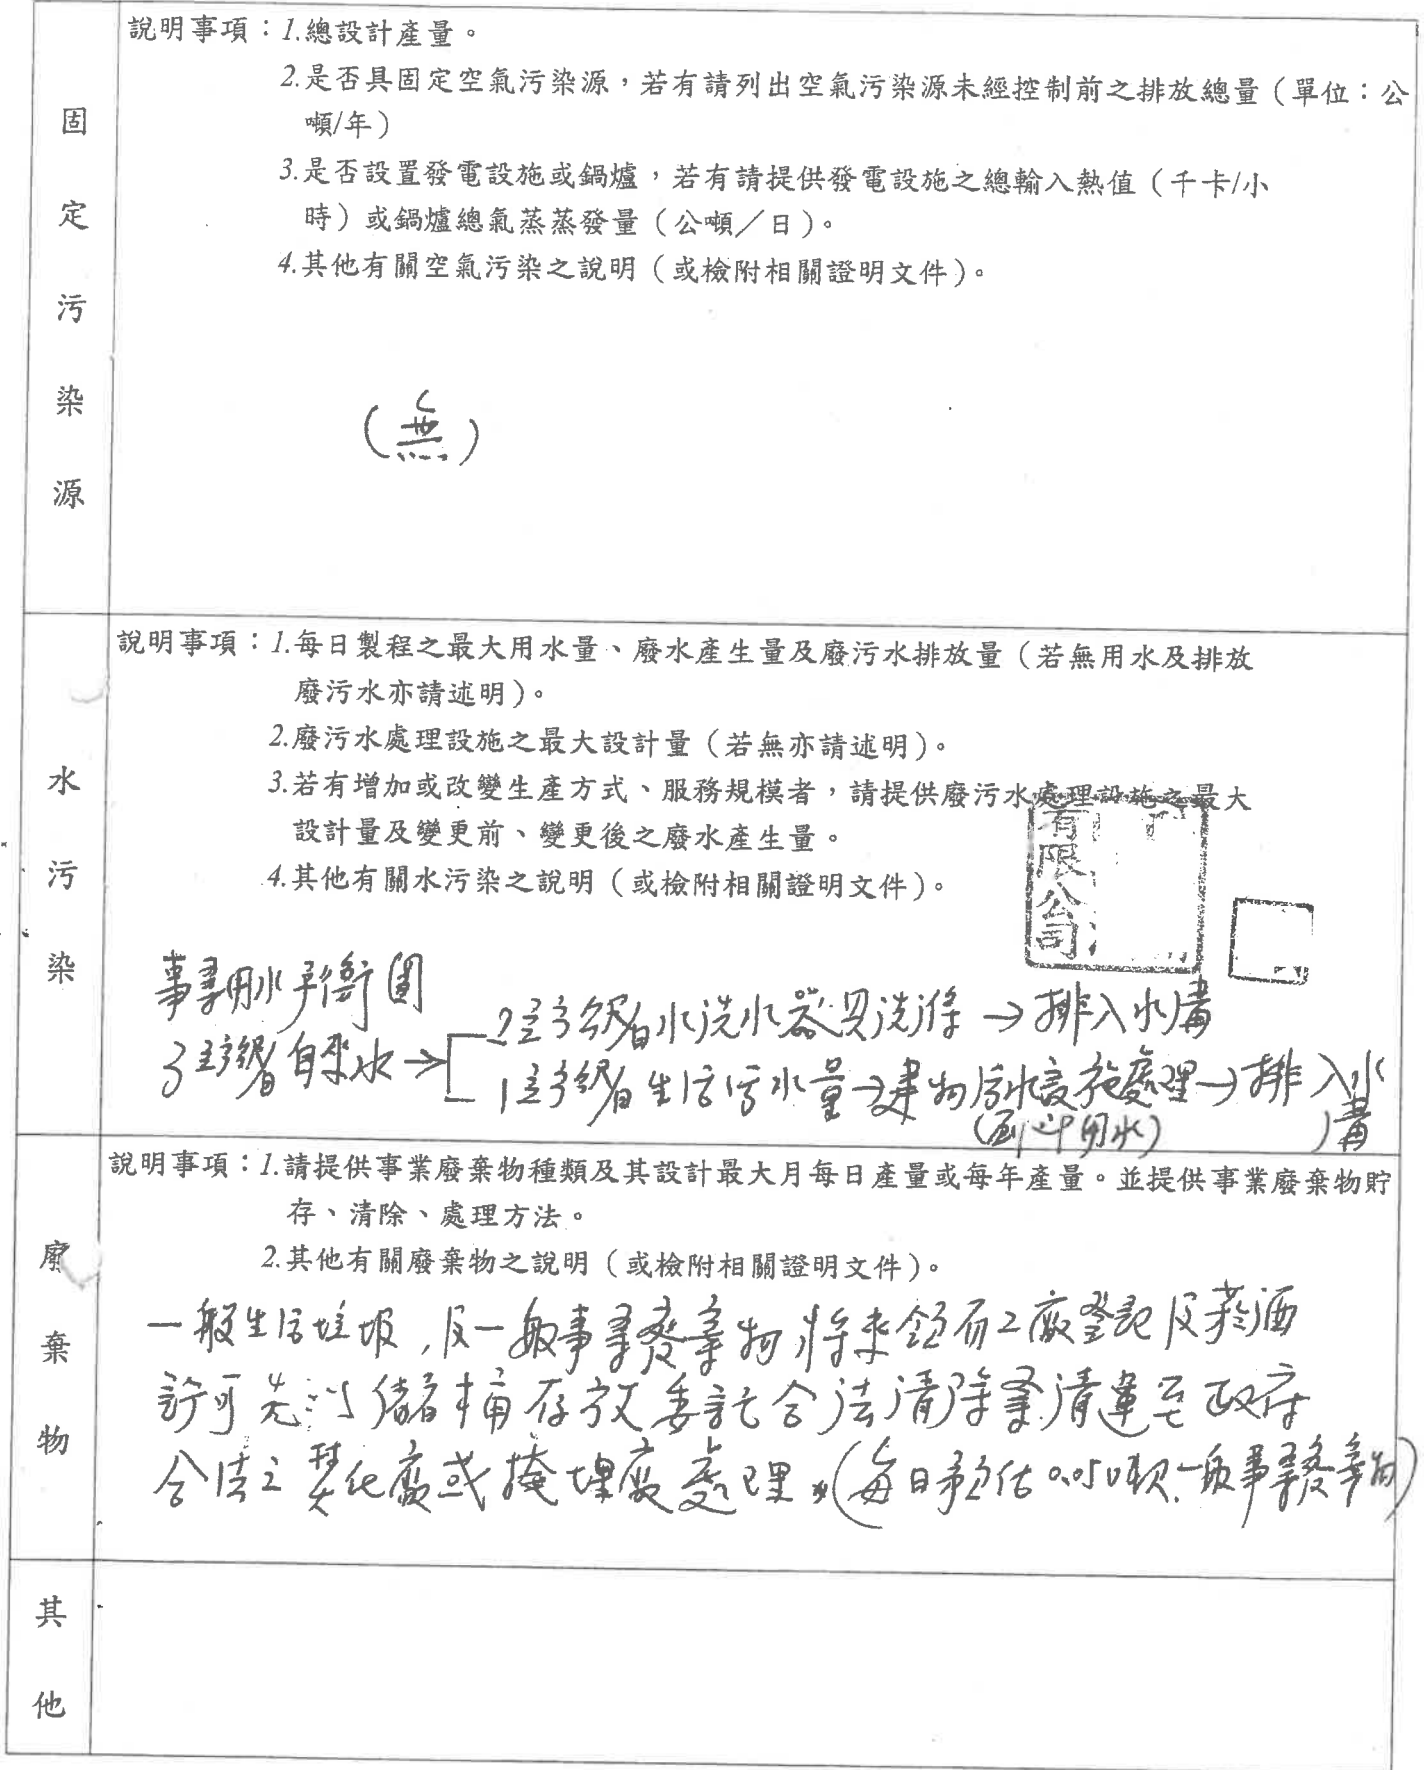 固定污染源
說明事項：1.總設計產量。
2.是否具固定空氣污染源，若有請列出空氣污染源未經控制前之排放總量（單位：公
噸/年）
3.是否設置發電設施或鍋爐，若有請提供發電設施之總輸入熱值（千卡/小
時）或鍋爐總氣蒸蒸發量（公噸／日）。
4.其他有關空氣污染之說明（或檢附相關證明文件）。
（無）
水污染
說明事項：1.每日製程之最大用水量、廢水產生量及廢污水排放量（若無用水及排放
廢污水亦請述明）。
2.廢污水處理設施之最大設計量（若無亦請述明）。
3.若有增加或改變生產方式、服務規模者，請提供廢污水處理設施之最大
設計量及變更前、變更後之廢水產生量。
4.其他有關水污染之說明（或檢附相關證明文件）。
有限公司
事業用水平衡圖
2立方米/日水洗水器具洗滌→排入水溝
3立方米/日自來水→
1立方米/日生活污水量→建物污水設施處理→排入水溝
廢棄物
說明事項：1.請提供事業廢棄物種類及其設計最大月每日產量或每年產量。並提供事業廢棄物貯
存、清除、處理方法。
2.其他有關廢棄物之說明（或檢附相關證明文件）。
一般生活垃圾,及一般事業廢棄物將來領有工廠登記及菸酒
許可先以儲桶存放委託合法清除業清運至政府
合法之焚化廠或掩埋廠處理。(每日預估0.05噸一般事業廢棄物)
其他